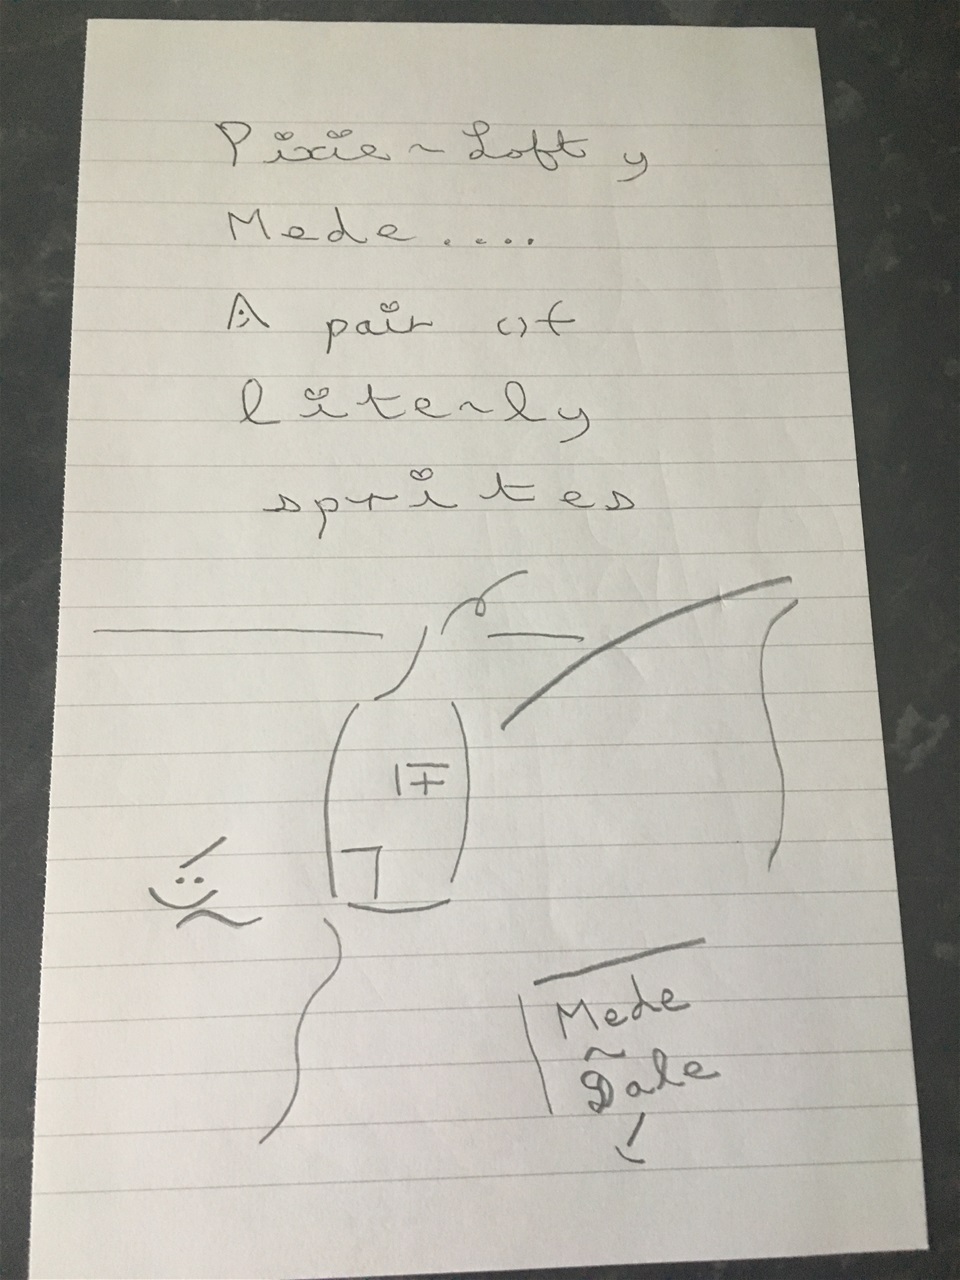 Pixie~Lofty
Mede.....
A pair of
literly
sprites
Mede
~
Dale